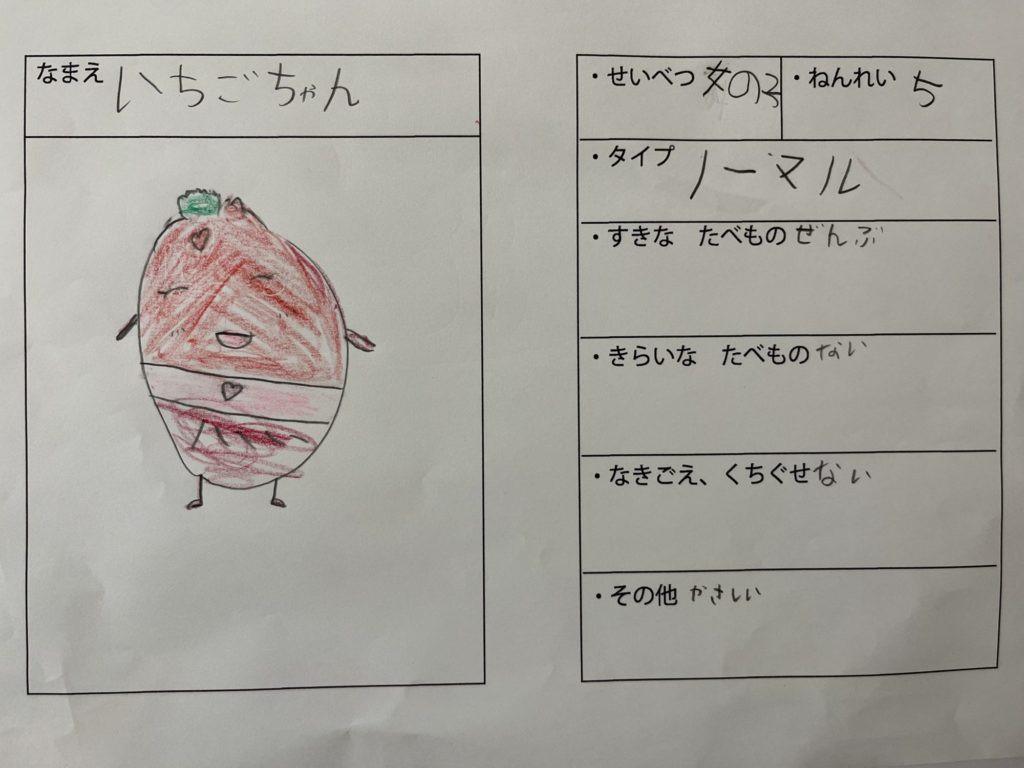 なまえ いちごちゃん
・せいべつ 女の子 ・ねんれい 5
・タイプ ノーマル
・すきな たべもの ぜんぶ
・きらいな たべもの ない
・なきごえ、くちぐせ ない
・その他 かさしい